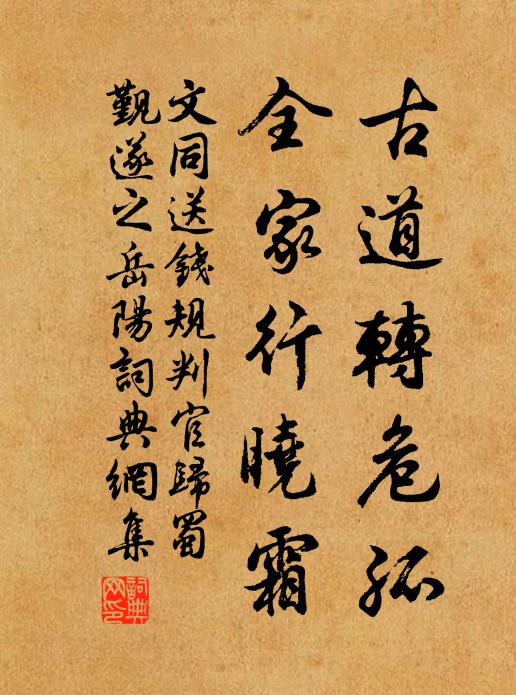 古道轉危孤
全家行曉霜
文同送錢規判官歸蜀
觐遂之岳陽詞典網集
詞典网印